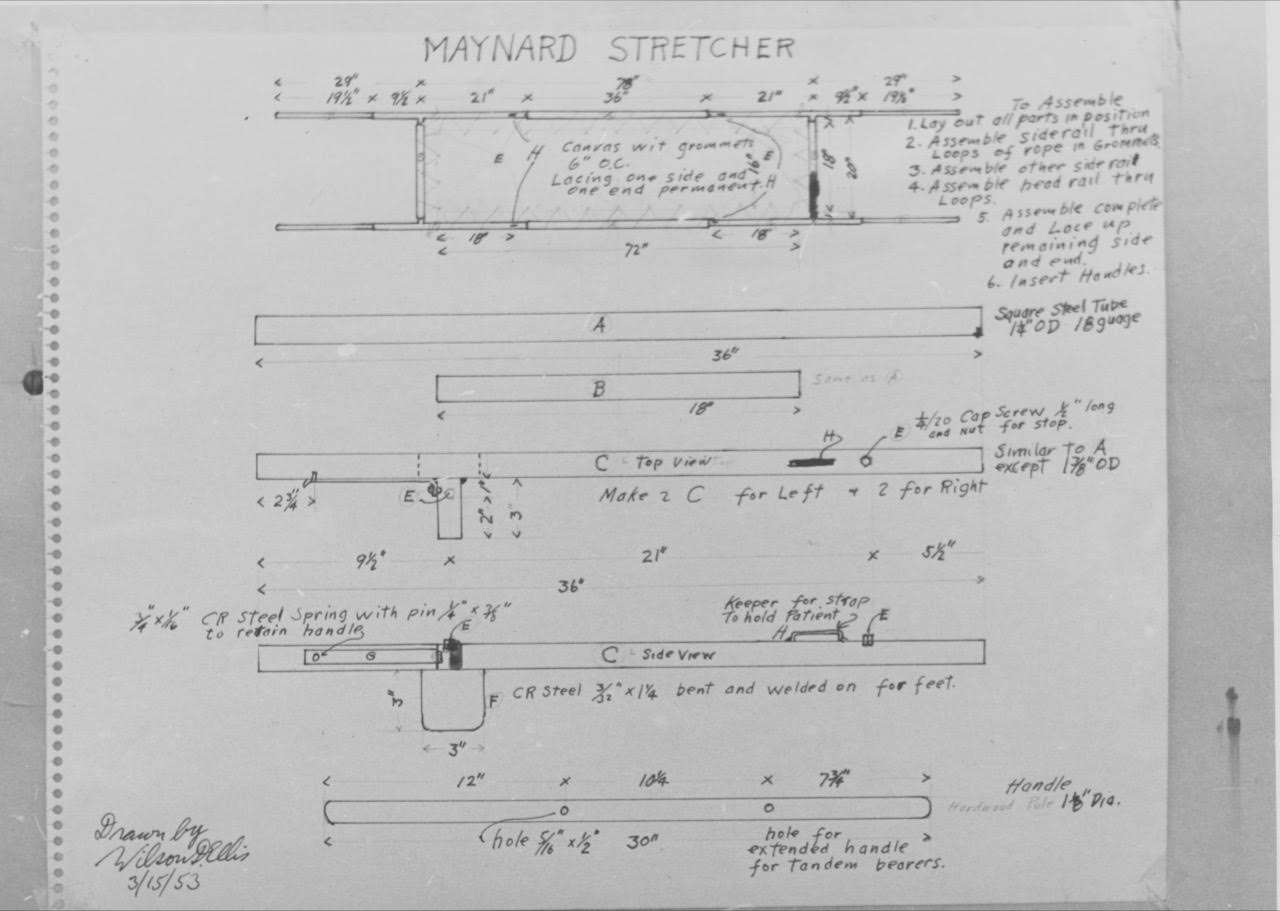 MAYNARD STRETCHER
29" 78" 29"
19½" 9½ 21" 36" 21" 9½" 19½"
E H Canvas wit grommets
6" O.C.
Lacing one side and
one end permanent. H
16" E 18" 20"
18" 18"
72"
To Assemble
1. Lay out all parts in position
2. Assemble siderail thru
Loops of rope in Grommets
3. Assemble other side rail
4. Assemble head rail thru
Loops.
5. Assemble complete
and Lace up
remaining side
and end.
6. Insert Handles.
A
Square Steel Tube
1¼" OD 18 guage
36"
B
Same as A
18"
E ¼/20 Cap Screw ½" long
and Nut for stop.
H
C - Top View
Similar To A
except 1⅜" OD
2¾" E 2" 1" 3"
Make 2 C for Left + 2 for Right
9½" 21" 5½"
36"
¾" x 1/16" CR Steel Spring with pin ¼" x ⅜"
to retain handle
E
Keeper for strap
To hold Patient
H E
G C - Side View
3" F CR Steel 3/32" x 1¼ bent and welded on for feet.
3"
12" 10¼ 7¾"
Handle
Hardwood Pole 1⅛" Dia.
hole 5/16" x ½" 30"
hole for
extended handle
for Tandem bearers.
Drawn by
Wilson D. Ellis
3/15/53